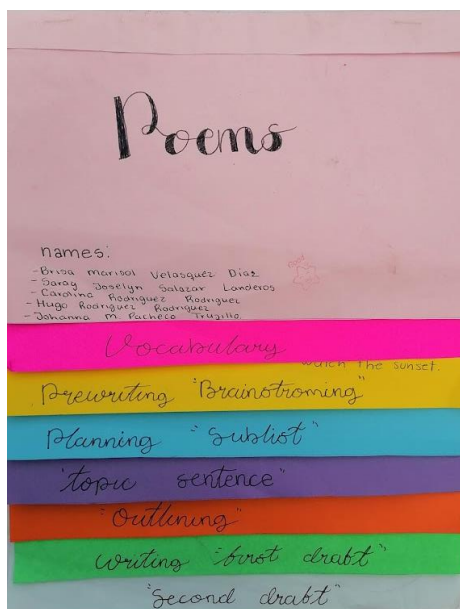 Poems
names:
- Brisa Marisol Velasquez Díaz
- Saray Joselyn Salazar Landeros
- Carolina Rodriguez Rodriguez
- Hugo Rodriguez Rodriguez
- Johanna M. Pacheco Trujillo.
Vocabulary
watch the sunset.
Prewriting "Brainstroming"
Planning "Sublist"
"topic sentence"
"Outlining"
Writing "first draft"
"Second draft"